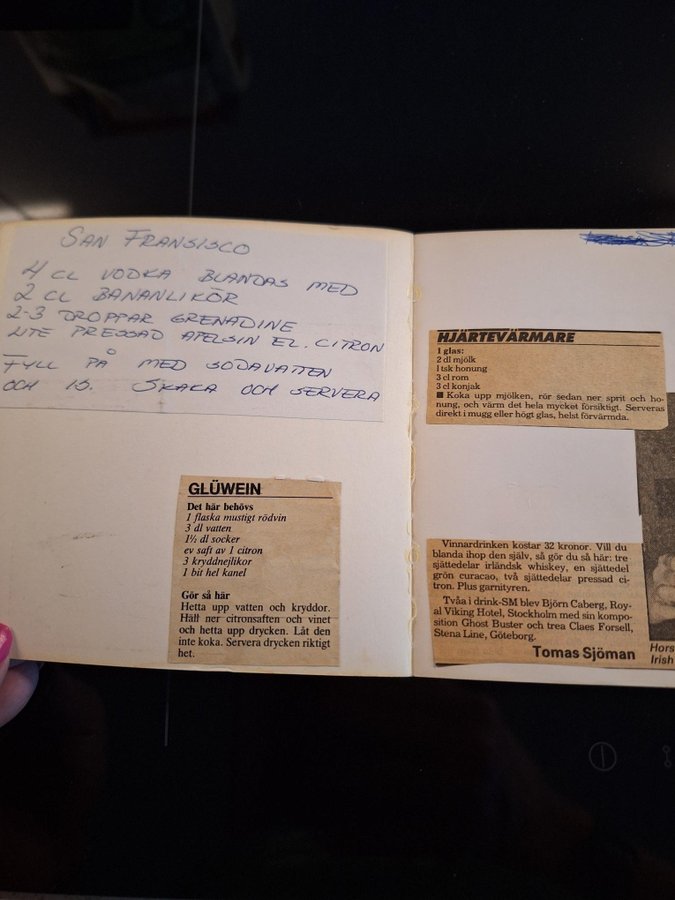 SAN FRANSISCO
4 CL VODKA BLANDAS MED
2 CL BANANLIKÖR
2-3 DROPPAR GRENADINE
LITE PRESSAD APELSIN EL. CITRON
FYLL PÅ MED SODAVATTEN
OCH IS. SKAKA OCH SERVERA
GLÜWEIN
Det här behövs
1 flaska mustigt rödvin
3 dl vatten
1½ dl socker
ev saft av 1 citron
3 kryddnejlikor
1 bit hel kanel
Gör så här
Hetta upp vatten och kryddor.
Häll ner citronsaften och vinet
och hetta upp drycken. Låt den
inte koka. Servera drycken riktigt
het.
HJÄRTEVÄRMARE
1 glas:
2 dl mjölk
1 tsk honung
3 cl rom
3 cl konjak
■ Koka upp mjölken, rör sedan ner sprit och ho-
nung, och värm det hela mycket försiktigt. Serveras
direkt i mugg eller högt glas, helst förvärmda.
Vinnardrinken kostar 32 kronor. Vill du
blanda ihop den själv, så gör du så här: tre
sjättedelar irländsk whiskey, en sjättedel
grön curacao, två sjättedelar pressad ci-
tron. Plus garnityren.
Tvåa i drink-SM blev Björn Caberg, Roy-
al Viking Hotel, Stockholm med sin kompo-
sition Ghost Buster och trea Claes Forsell,
Stena Line, Göteborg.
Tomas Sjöman
Hors
Irish